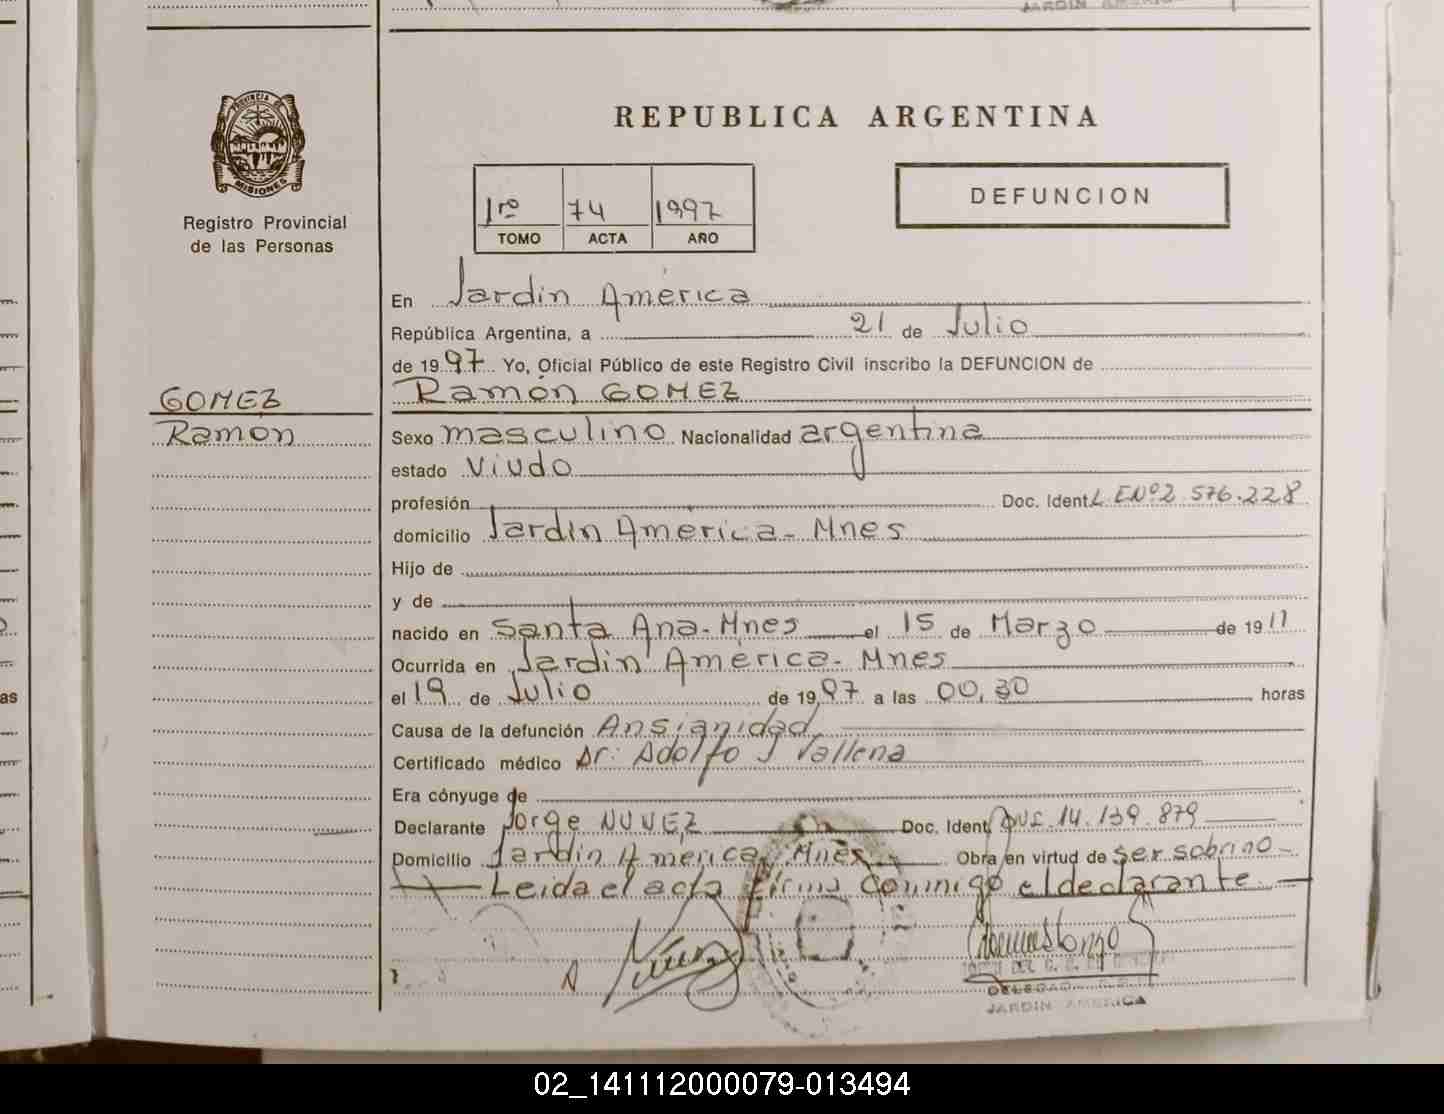 REPUBLICA ARGENTINA
PROVINCIA DE
MISIONES
Registro Provincial
de las Personas
1ro 74 1997
TOMO ACTA AÑO
DEFUNCION
En Jardin América
República Argentina, a 21 de Julio
de 1997 Yo, Oficial Público de este Registro Civil inscribo la DEFUNCION de
Ramón GOMEZ
GOMEZ
Ramón
Sexo masculino Nacionalidad argentina
estado viudo
profesión Doc. Ident. L.E Nº 2.576.228
domicilio Jardín America - Mnes
Hijo de
y de
nacido en Santa Ana - Mnes el 15 de Marzo de 1911
Ocurrida en Jardin América - Mnes
el 19 de Julio de 1997 a las 00,30 horas
Causa de la defunción Ansianidad
Certificado médico Dr. Adolfo J Vallena
Era cónyuge de
Declarante Jorge NUÑEZ Doc. Ident. 14.139.879
Domicilio Jardin América, Mnes Obra en virtud de ser sobrino -
Leida el acta firma conmigo el declarante
JARDIN AMERICA
02_141112000079-013494